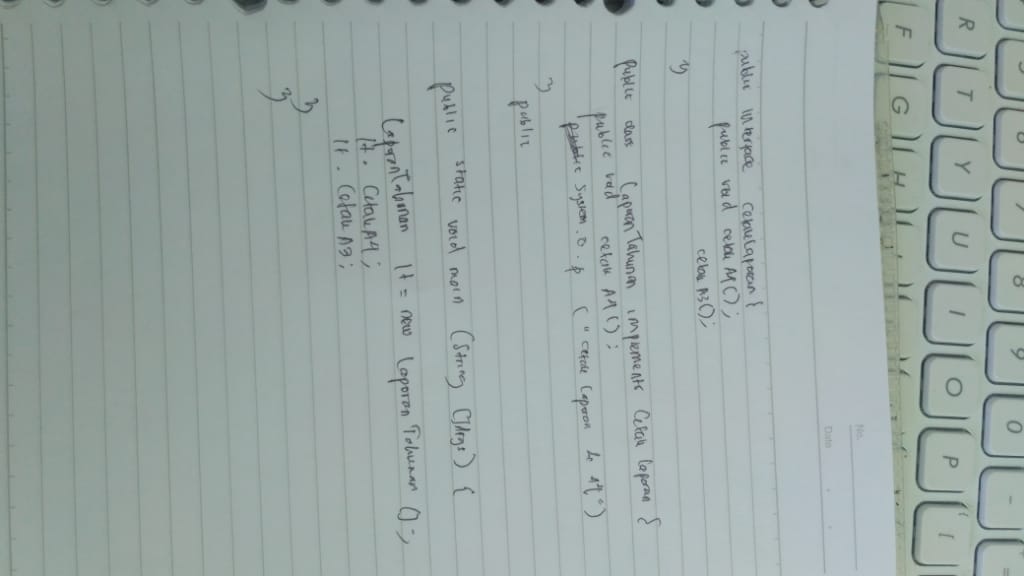 No.
Date
public interface cetakLaporan {
public void cetak A4();
cetak A3();
}
public class LaporanTahunan implements Cetak laporan {
public void cetak A4 ();
System.o.p ( " cetak Laporan ke A4 " )
}
public
public static void main (String []Args) {
LaporanTahunan lt = new Laporan Tahunan ();
lt. CetakA4;
lt. CetakA3;
}
}
R T Y U I O P [
F G H
6 7 8 9 0 - =